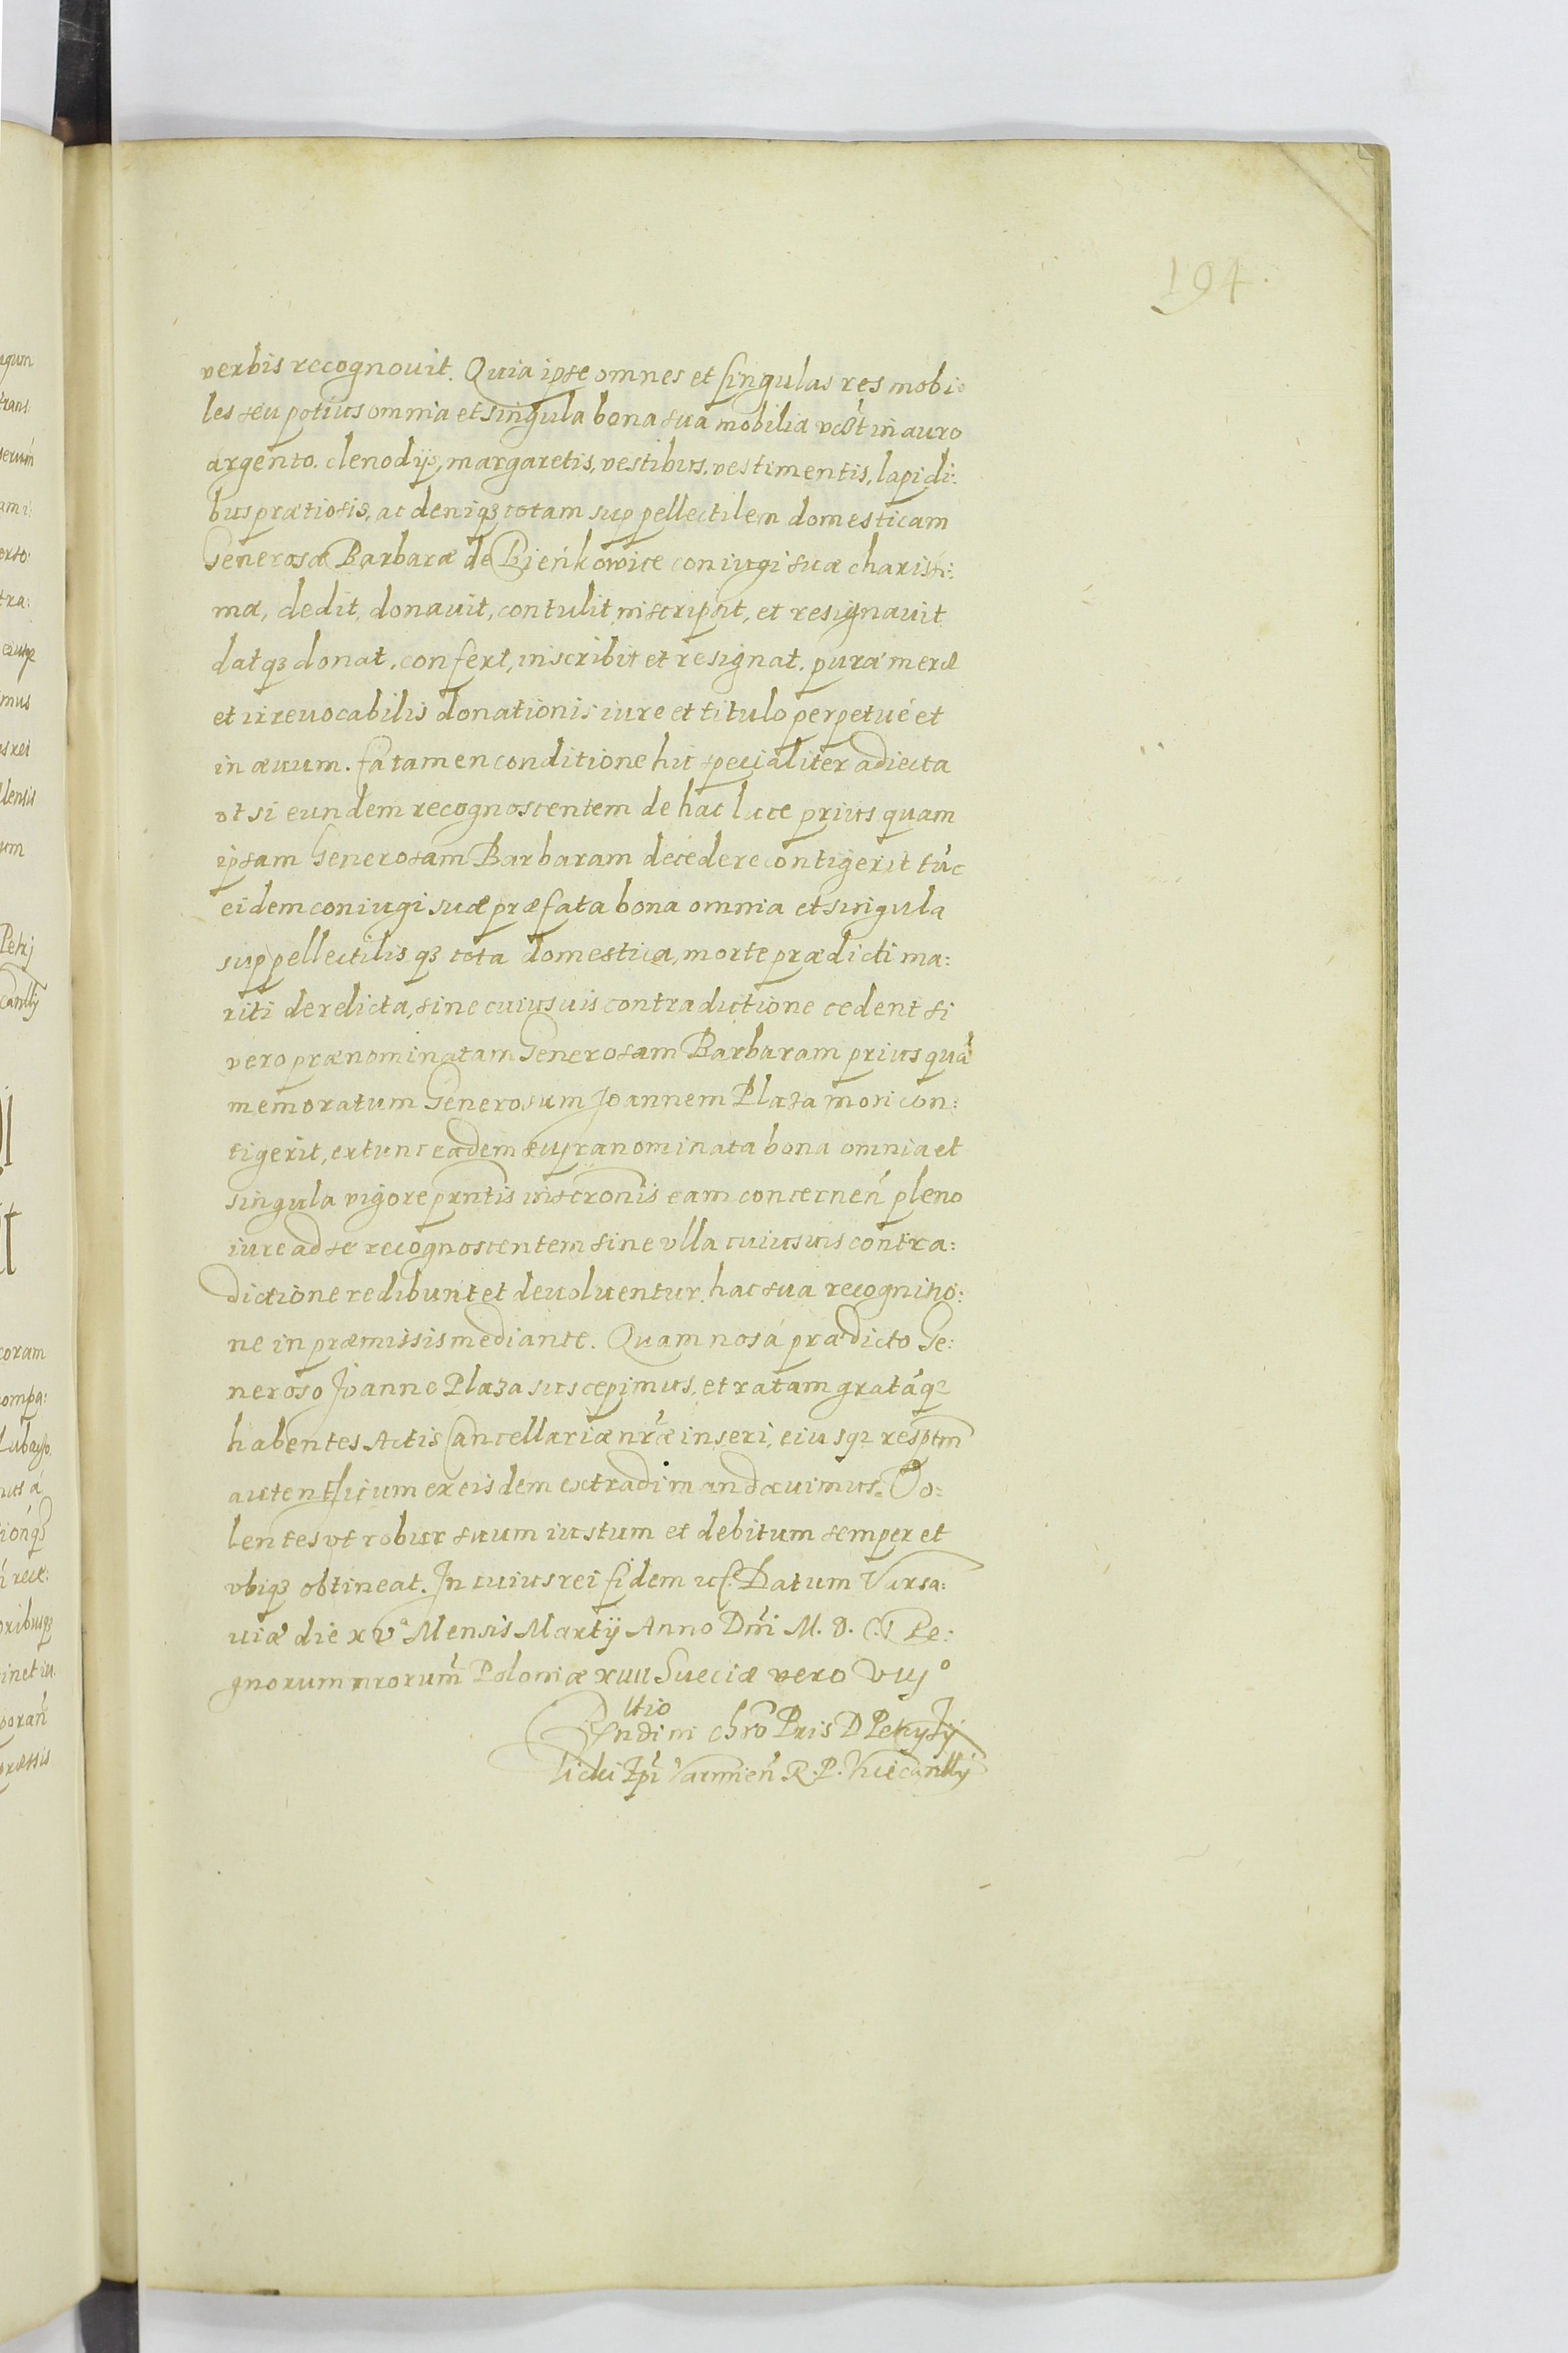 194.
verbis recognouit. Quia ipse omnes et singulas res mobi:
les seu potius omnia et singula bona sua mobilia in auro
argento. clenodijs, margaretis, vestibus, vestimentis, lapidi:
bus prætiosis, ac deniq3 totam suppellectilem domesticam
Generosæ Barbaræ de Bieńkowice coniugi suæ charissi:
mæ, dedit, donauit, contulit, inscripsit, et resignauit
datq3 donat, confert, inscribit et resignat. puræ meræ
et irreuocabilis donationis iure et titulo perpetué et
in æuum. Ea tamen conditione hic specialiter adiecta
vt si eundem recognoscentem de hac luce prius quam
ipsam Generosam Barbaram decedere contigerit tūc
eidem coniugi suæ præfata bona omnia et singula
suppellectilis q3 tota domestica, morte prædicti ma:
riti derelicta, sine cuiusuis contradictione cedent si
vero prænominatam Generosam Barbaram prius quā
memoratum Generosum Joannem Plaza mori con:
tigerit, extunc eadem supranominata bona omnia et
singula vigore prntis inscronis eam concernen̄ pleno
iure ad se recognoscentem sine vlla cuiusuis contra:
dictione redibunt et deuoluentur. hac sua recognitio:
ne in præmissis mediante. Quam nos á prædicto Ge:
neroso Joanne Plaza suscepimus, et ratam gratāq3
habentes Actis Cancellariæ nr̄æ inseri, eiusq3 resptm
autenticum ex eisdem extradi mandauimus. Vo:
lentes vt robur suum iustum et debitum semper et
vbiq3 obtineat. In cuius rei fidem Datum Varsa:
uiæ die xvª Mensis Martij Anno Dn̄i M. D. C. I Re:
gnorum nrorum̄ Poloniæ xiiii Sueciæ vero viijº
ltio
Rndi in Chrō Pris D Petri Ty
licki Ep̄i Varmien̄ R. P. Vicecanllij